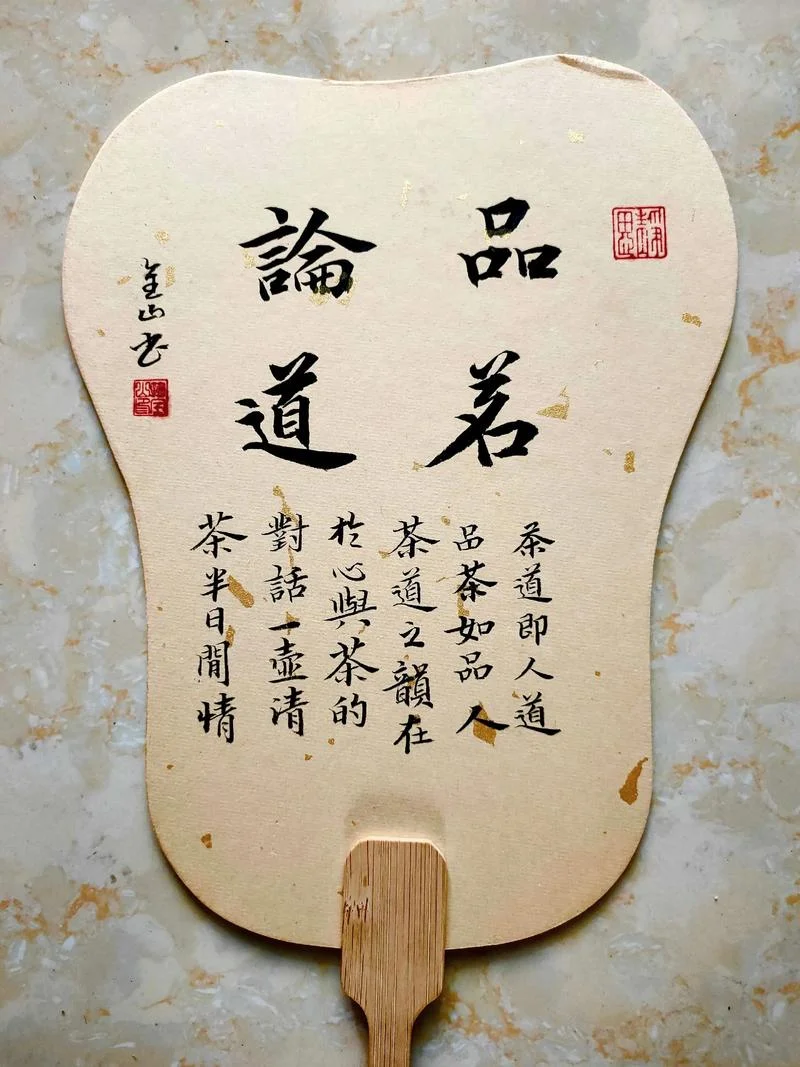 品茗
論道
茶道即人道
品茶如品人
茶道之韻在
於心與茶的
對話一壺清
茶半日閒情
金山书